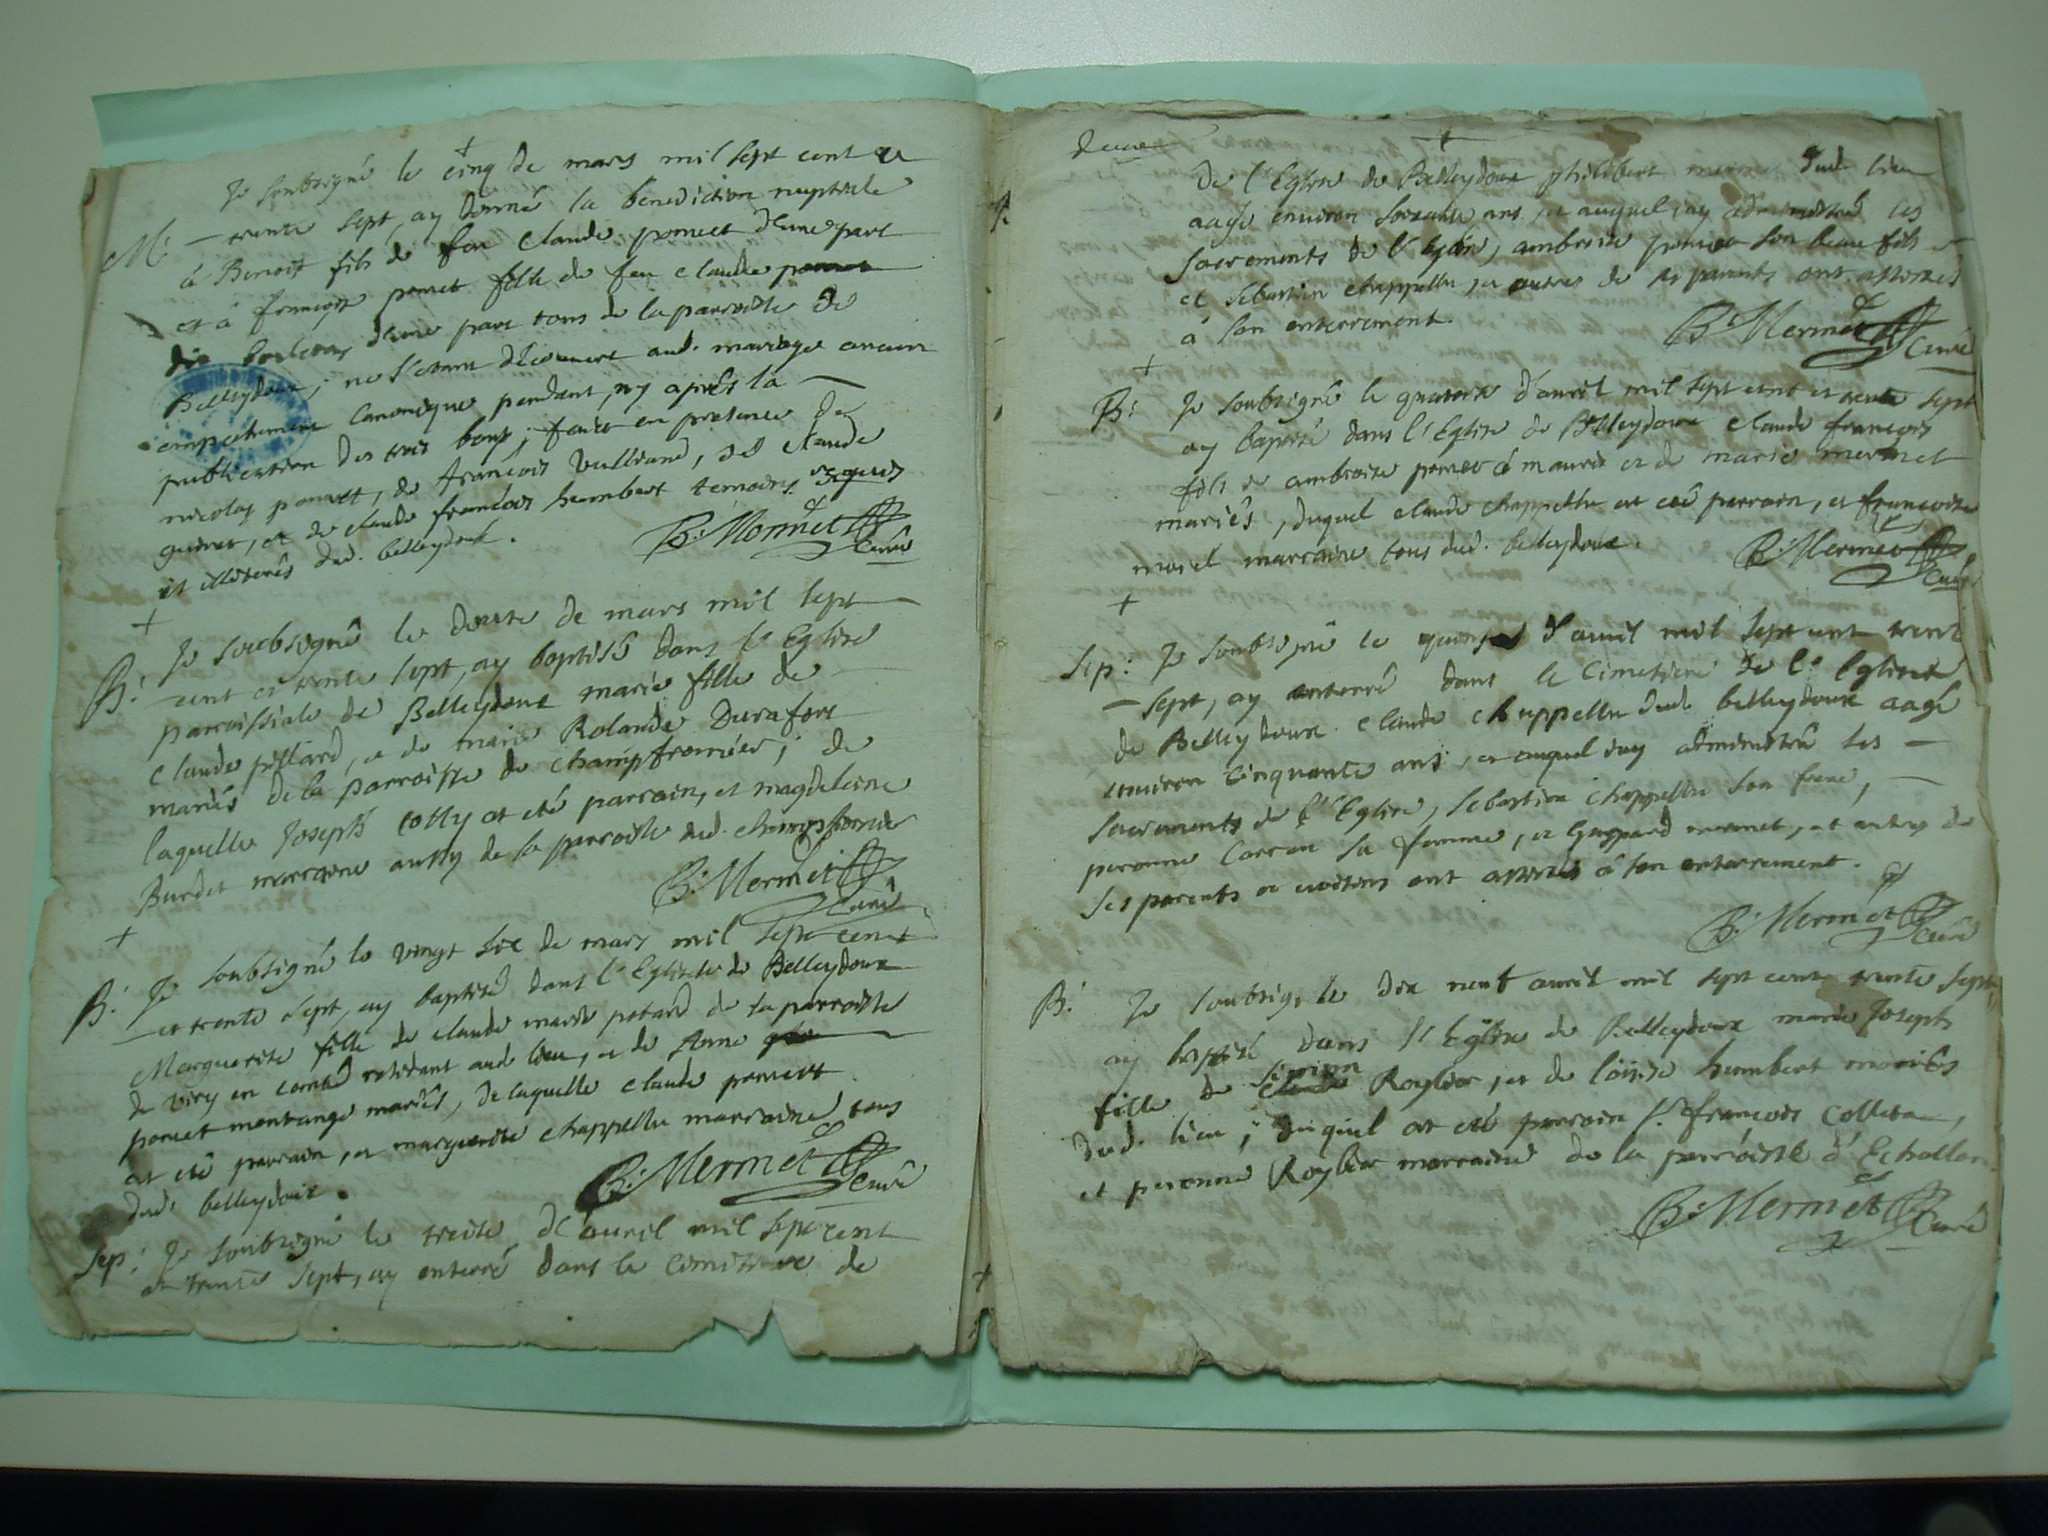 Je soubsigné le cinq de mars mil sept cent et
M: trente sept, ay donné la benediction nuptiale
à Benoist fils de feu Claude poncet d'une part
et à françoise poncet fille de feu claude
d'une part tous de la parroisse de
Belleydoux, ne s'etant découvert aud. mariage aucun
empechement canonique pendant, ny après la
publication des trois bans; fait en presence de
nicolas poncet, de françois Vulliand, de claude
et de claude françois humbert temoins requis
et illiterés dud. belleydoux.
B: Mermet
Curé
B: Je soubsigné le douze de mars mil sept
cent et trente sept, ay baptisé dans l'Eglise
parroissiale de Belleydoux marie fille de
claude pillard, et de marie Rolande Durafort
mariés de la parroisse de champfromier; de
laquelle Joseph Colly at eté parrain, et magdeleine
Burdet marraine aussy de la parroisse dud. champfromier
B: Mermet
Curé
B: Je soubsigné le vingt six de mars mil sept cent
et trente sept, ay baptisé dans l'Eglise de Belleydoux
Marguerite fille de claude marie potard de la parroisse
de viry en comté residant aud. lieu, et de Anne
poncet montange mariés, de laquelle claude poncet
at eté parrain, et marguerite chappellu marraine tous
dud. belleydoux.
B: Mermet
Curé
Sep: Je soubsigné le treize d'avril mil sept cent
et trente sept, ay enterré dans le cimitiere de
de l'Eglise de Belleydoux philibert mermet dud. lieu
aagé environ soixante ans, et auquel j'ay administré les
sacrements de l'Eglise, ambroise poncet son beau fils
et sebastien chappellu, et autres de ses parents ont assistés
à son enterrement.
B: Mermet
Curé
B: Je soubsigné le quatorze d'avril mil sept cent et trente sept
ay baptisé dans l'Eglise de Belleydoux claude françois
fils de ambroise poncet à mauris et de marie mermet
mariés, duquel claude chappellu at eté parrain, et françoise
marraine tous dud. belleydoux.
B: Mermet
Curé
Sep: Je soubsigné le quinze d'avril mil sept cent trente
sept, ay enterré dans le cimetiere de l'Eglise
de Belleydoux claude chappellu dud. belleydoux aagé
environ cinquante ans, et auquel j'ay administré les
sacrements de l'Eglise, sebastien chappellu son frere,
peronne sa femme, et Gaspard mermet, et autres de
ses parents et voisins ont assistés à son enterrement.
B: Mermet
Curé
B: Je soubsig. le dix neuf avril mil sept cent trente sept
ay baptisé dans l'Eglise de Belleydoux marie Joseph
fille de Roybier, et de loüise humbert mariés
dud. lieu; duquel at eté parrain Sr. françois Colletaz,
et peronne Roybier marraine de la parroisse d'Echallon
B: Mermet
Curé